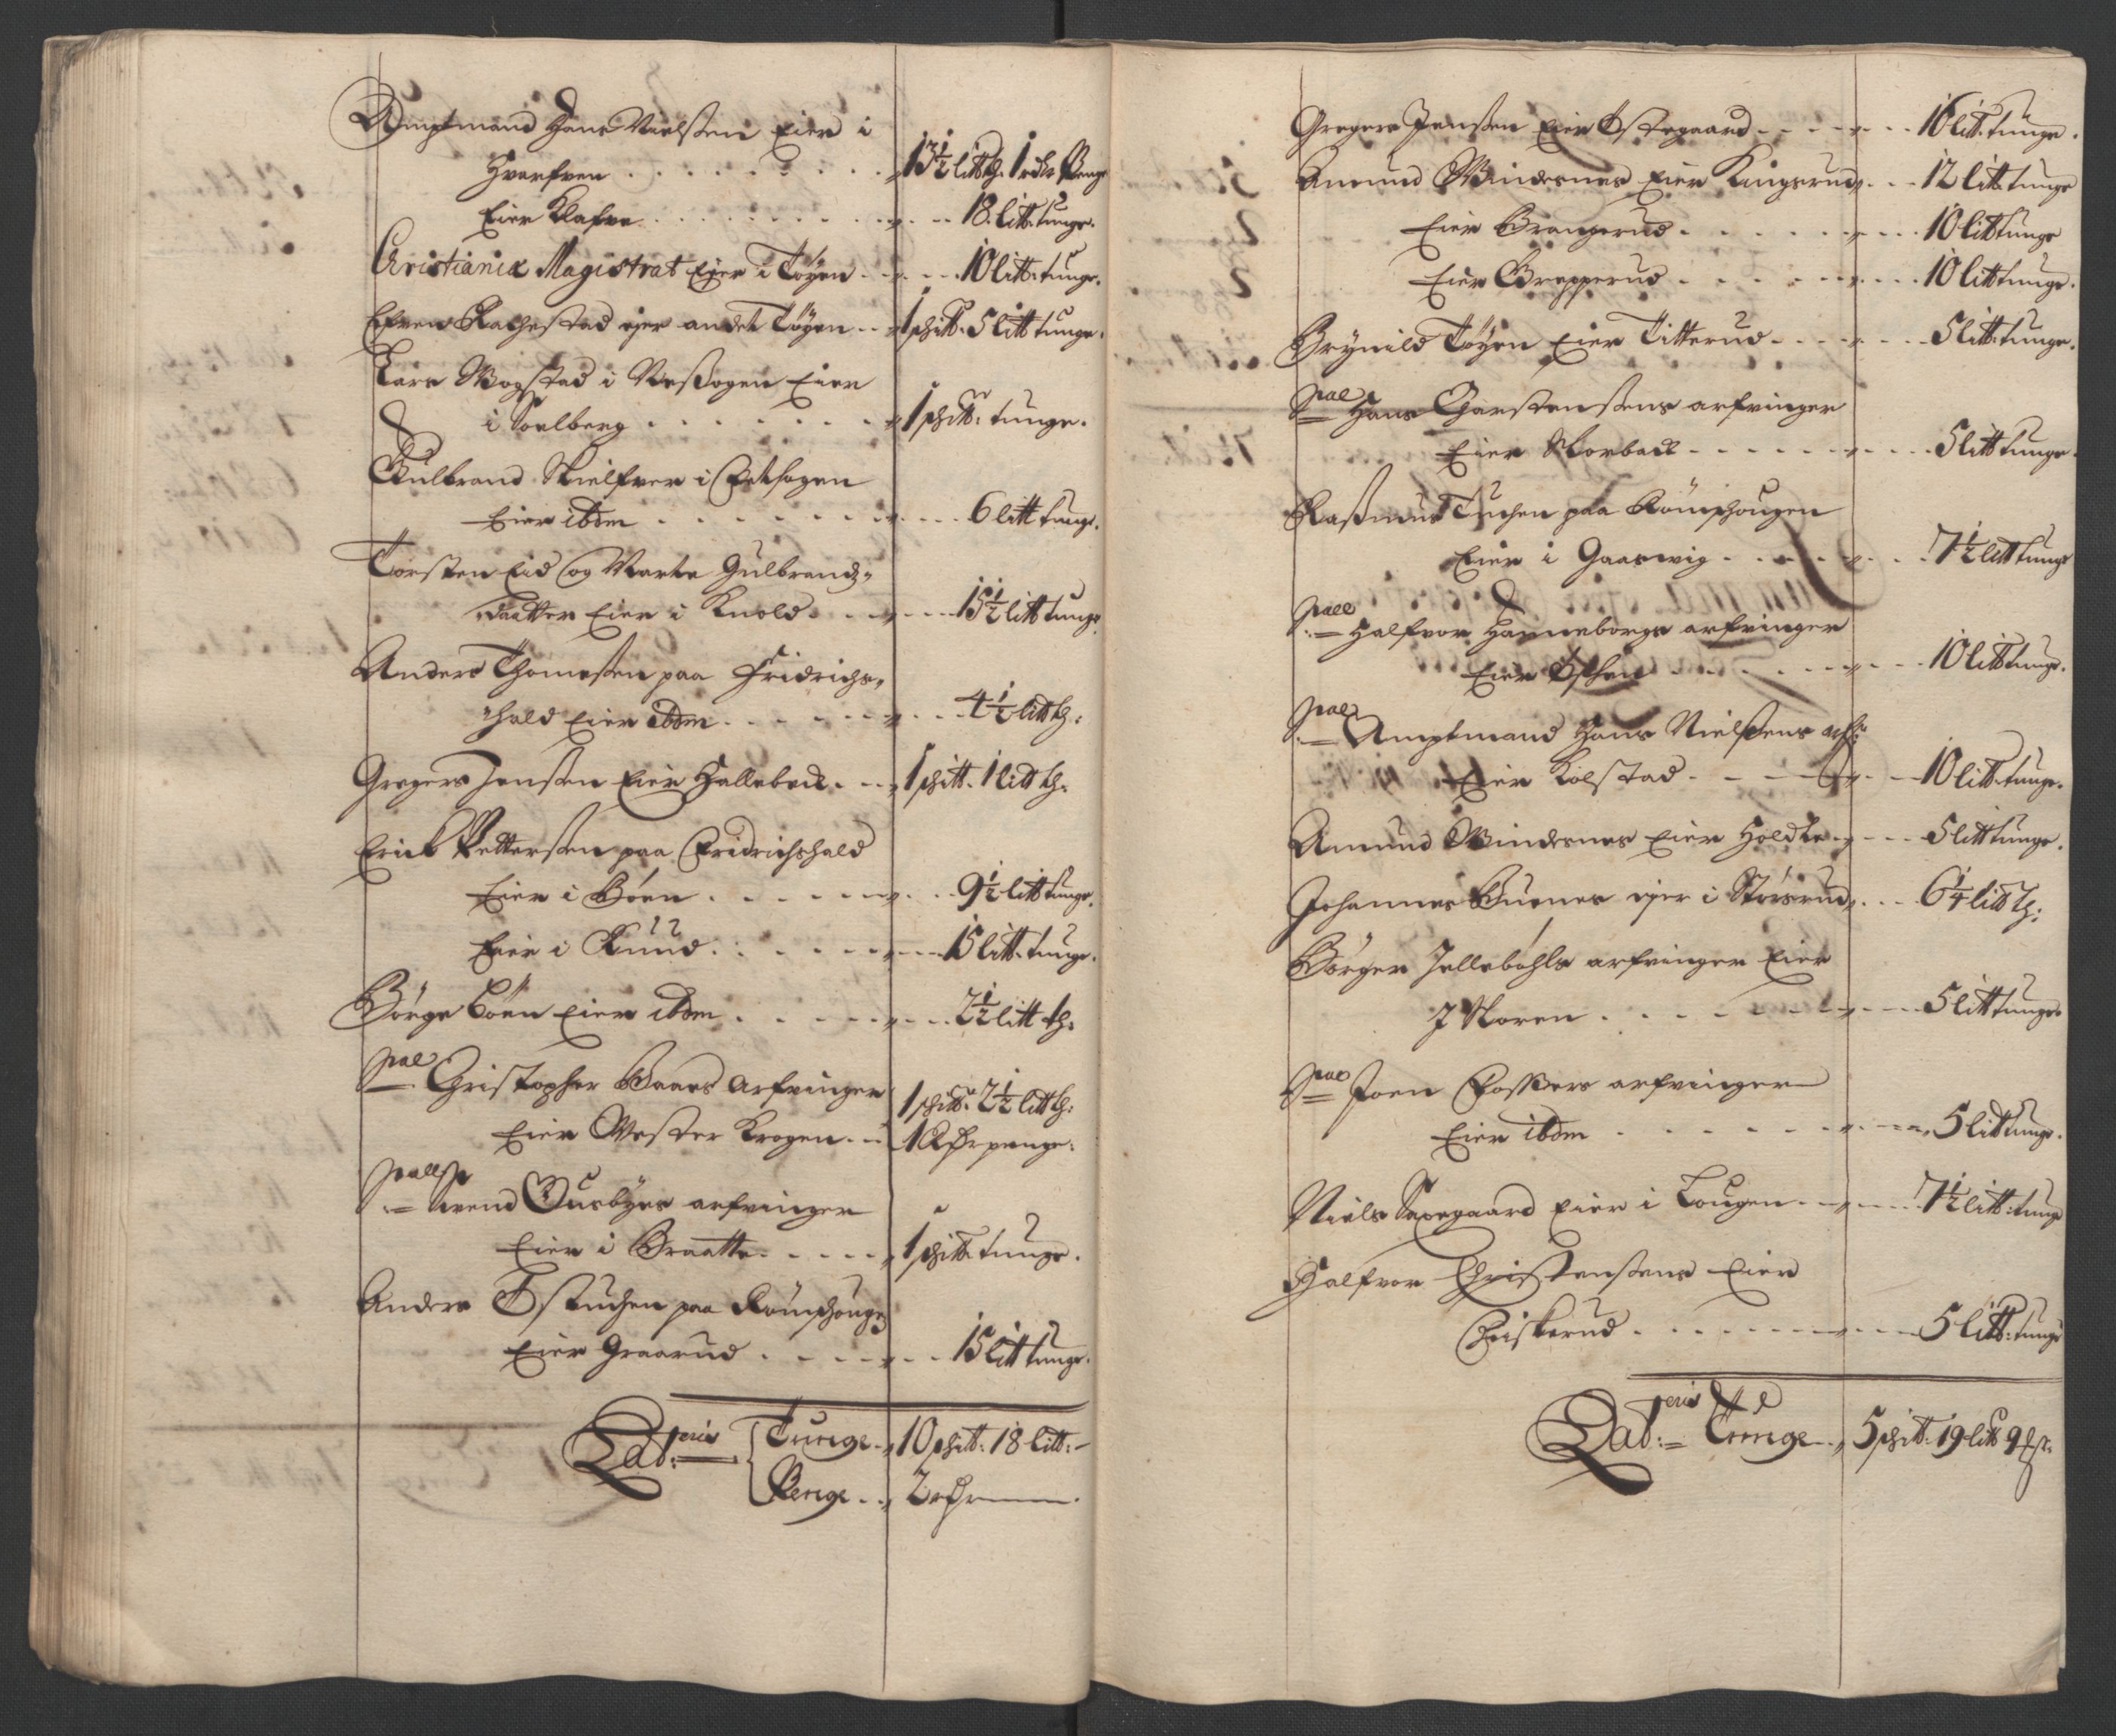 Amptmand Hans Nielssen Eier i
Hvarfven . . . . . . . . . 13½ litt tz. 1 rdr Penge
Eier Klafve . . . . . . . . 18. litt: tunge.
Christianiæ Magistrat Eier i Töyen . . . 10 litt: tunge.
Efven Rachestad ejer andet Töyen . . 1 schitt: 5 litt tunge.
Lars Mogstad i Nessogen Eier
i Soelberg . . . . . . . 1 schitt: tunge.
Gulbrand Skielfver i
Eier ibdm . . . . . . . 6 litt tunge.
Torsten Eid og Marte Gulbrands
daatter Eier i Knold . . . 15½ litt tunge
Anders Thomesen paa Fridrichs
hald Eier ibdm . . . . . . 4½ litt tz:
Gregers Jenssen Eier Hallebeck . . . 1 schitt. 1 litt tz.
Erick Pettersen paa Fridrichshald
Eier i Böen . . . . . . . 9½ litt tunge.
Eier i Ruud . . . . . . . 15 litt: tunge.
Börge Böen Eier ibdm . . . . . 2½ litt tz.
Sal Christopher Baars Arfvinger
1 schitt. 2½ litt tz:
Eier Vester Krogen . . 1 Rdr penge.
Salig
Svend Ousbyes arfvinger
Eier i Braatte . . . . . 1 schitt. tunge.
Anders Östuchen paa Römschouge
Eier Graarud . . . . . 15 litt tunge.
Lat:eris Tunge . . 10 schitt: 18 litt:
Penge . . 2 rdr
Gregers Jenssen Eier Östegaard . . . . . 16 litt. tunge.
Amund Windernes Eier Kingsrud . . . 12 litt. tunge
Eier Brangerud . . . . . . . 10 litt tunge
Eier Grepperud . . . . . . . 10 litt tunge.
Brynild Töyen Eier Titterud . . . . . 5 litt: tunge.
Sal Hans Carstensens arfvinger
Eier Norbeck . . . . . . . 5 litt tunge.
Rasmus Tuchen paa Römschougen
Eier i Gaasvig . . . . . . 7½ litt tunge
Sal
Halfvor Hanneborgs arfvinger
Eier . . . . . . 10 litt tunge.
Sal Amptmand Hans Nielsens arf:
Eier Kolstad . . . . . 10 litt: tunge.
Amund Windernes Eier Holdte . . . 5 litt tunge.
Johannes Buernes ejer i Störsrud . . . 6¼ litt tz:
Börger Jelleböhls arfvinger Eier
I Noren . . . . . . . . 5 litt tunge
Sal Joen Fossers arfvinger
Eier ibdm . . . . . . . 5 litt tunge.
Niels Saxegaard Eier i Lougen . . . . 7½ litt: tunge
Halfvor Christensens Eier
Fiskerud . . . . . . . . 5 litt: tunge
Lat:eris Tunge . . 5 schitt. 19 litt 9